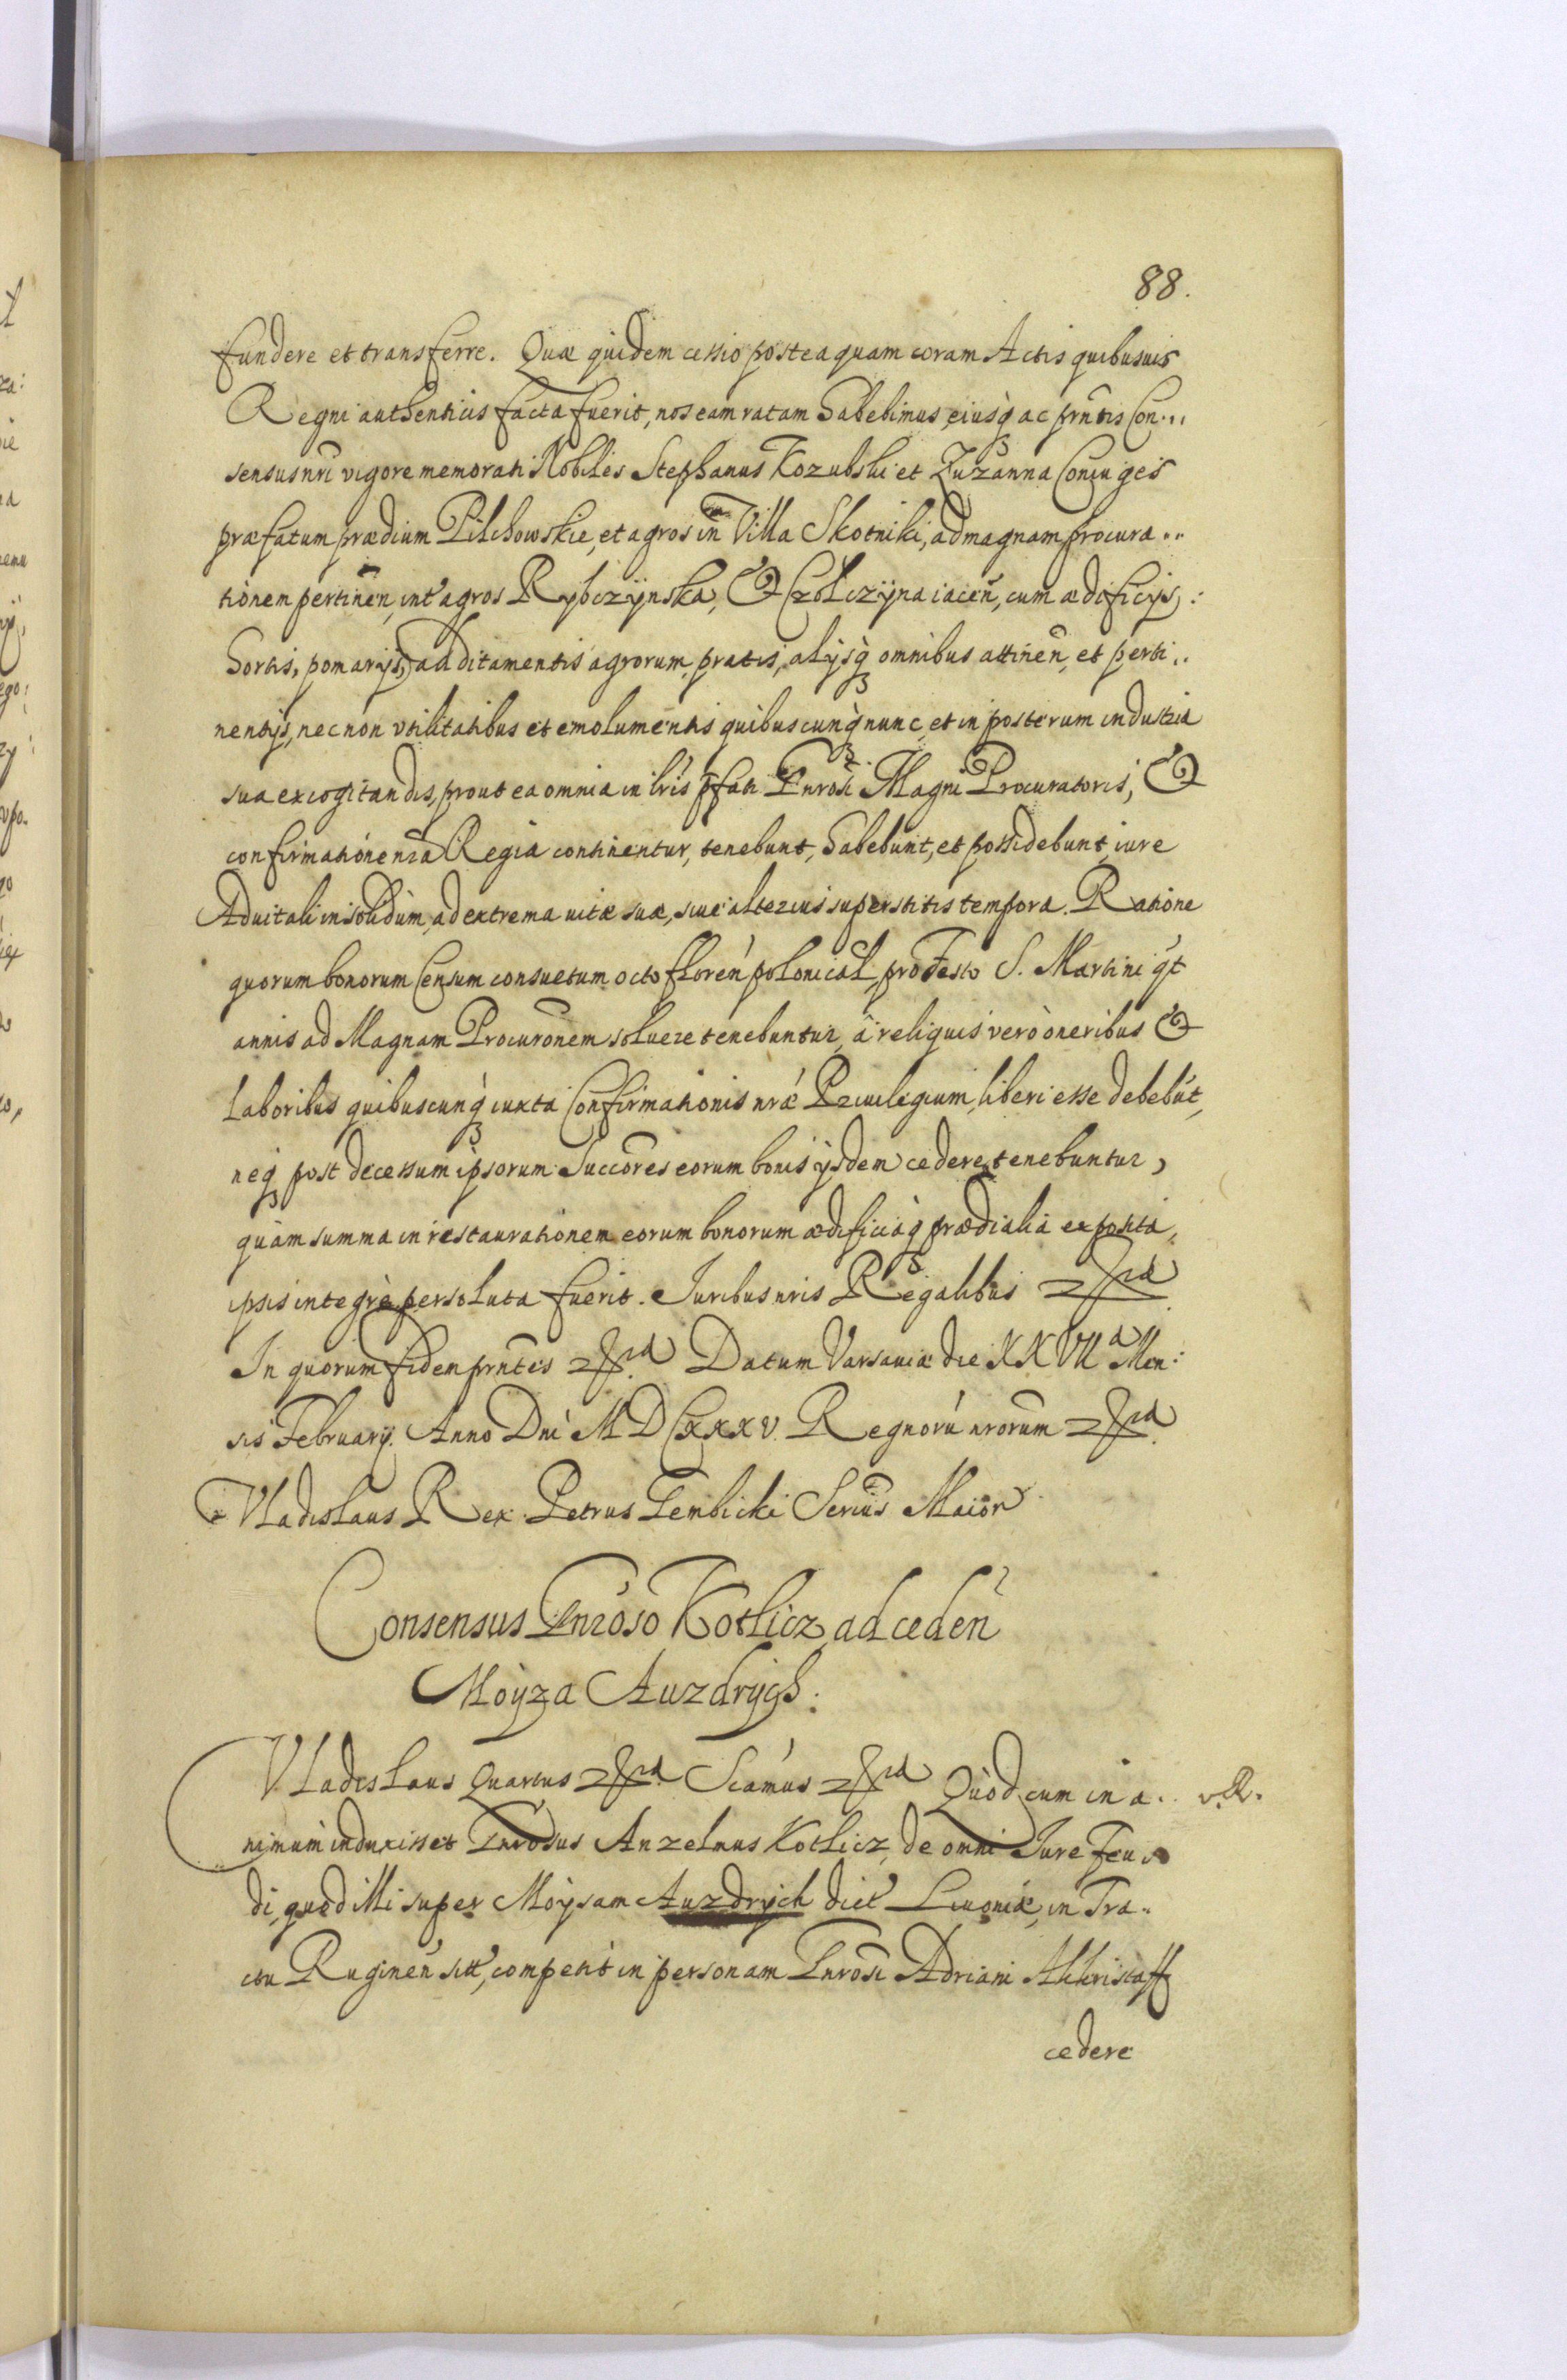 88.
fundere et transferre. Quæ quidem cessio posteaquam coram Actis quibusuis
Regni authenticis facta fuerit, nos eam ratam habebimus, eiusq ac prntis Con...
sensus nri vigore memorati Nobiles Stephanus Kozubski et Zuzanna Coniuges
præfatum prædium Pilchowskie, et agros in Villa Skotniki, ad magnam procura..
tionem pertinen, int agros Rybczÿnska, & Czolczÿna iacen, cum ædificijs:
hortis, pomarijs, additamentis agrorum, pratis, alijsq omnibus attinen, et perti..
nentijs, nec non vtilitatibus et emolumentis quibuscunq nunc, et in posterum industria
sua excogitandis, prout ea omnia in lris pfati Gnrosi Magni Procuratoris, &
confirmatione nra Regia continentur, tenebunt, habebunt, et possidebunt, iure
Aduitali in solidum, ad extrema uitæ suæ, siue alterius superstitis tempora. Ratione
quorum bonorum Censum consuetum octo floren polonical, pro Festo S. Martini qt
annis ad Magnam Procuronem soluere tenebuntur, à reliquis verò oneribus &
laboribus quibuscunq iuxta Confirmationis nræ Priuilegium, liberi esse debebut,
neq post decessum ipsorum Succores eorum bonis ijsdem cedere tenebuntur,
quàm summa in restaurationem eorum bonorum ædificiaq prædialia exposita,
ipsis integrè persoluta fuerit. Iuribus nris Regalibus
In quorum fidem prntes Datum Varsauiæ die XXVII a Men:
sis February. Anno Dni MDCXXXV. Regnorú nrorum
Vladislaus Rex. Petrus Gembicki Secrius Maior
Consensus Gnroso Kotlicz ad ceden
Moÿza Auzdrÿch.
Vladislaus Quartus Scamus Quòd cum in a. v.R.
nimum induxisset Gnrosus Anzelmus Kotlicz, de omni Iure feu
di, quod illi super Moÿsam Auzdrÿch dict Liuoniæ, in Tra..
ctu Ruginen sitt, competit in personam Gnrosi Adriani
cedere